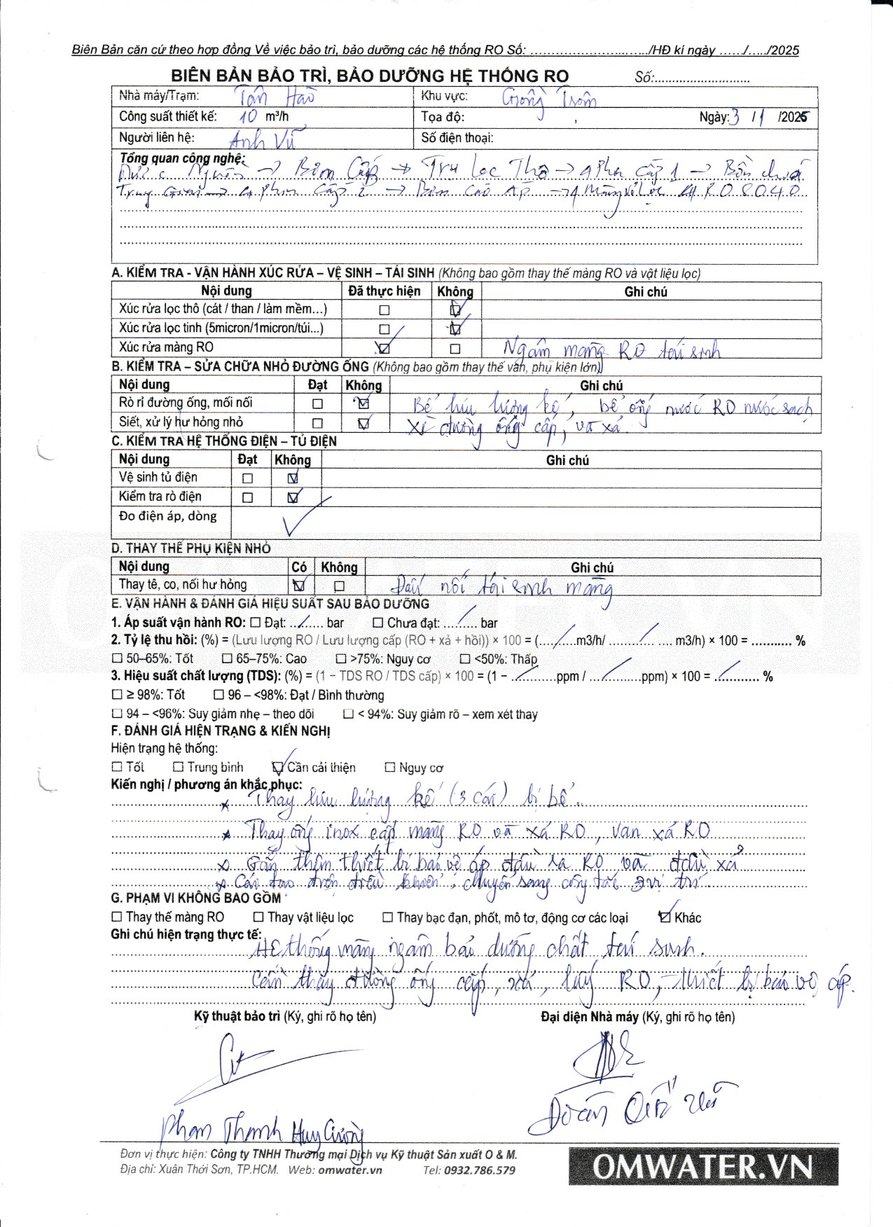 Biên Bản căn cứ theo hợp đồng Về việc bảo trì, bảo dưỡng các hệ thống RO Số: ............................/HĐ kí ngày ....../...../2025
BIÊN BẢN BẢO TRÌ, BẢO DƯỠNG HỆ THỐNG RO Số:...........................
Nhà máy/Trạm: Tân Hào Khu vực: Giồng Trôm
Công suất thiết kế: 10 m³/h Tọa độ: , Ngày: 3 / 1 /2026
Người liên hệ: Anh Vũ Số điện thoại:
Tổng quan công nghệ:
Nước Nguồn → Bơm Cấp → Trụ Lọc Thô → Cấp 1 → Bồn chứa
Trung Gian → Cấp 2 → Bơm Cao Áp → RO 8040
A. KIỂM TRA - VẬN HÀNH XÚC RỬA – VỆ SINH – TÁI SINH (Không bao gồm thay thế màng RO và vật liệu lọc)
Nội dung Đã thực hiện Không Ghi chú
Xúc rửa lọc thô (cát / than / làm mềm...) ☐ ☑
Xúc rửa lọc tinh (5micron/1micron/túi...) ☐ ☑
Xúc rửa màng RO ☑ ☐ Ngâm màng RO tái sinh
B. KIỂM TRA – SỬA CHỮA NHỎ ĐƯỜNG ỐNG (Không bao gồm thay thế van, phụ kiện lớn)
Nội dung Đạt Không Ghi chú
Rò rỉ đường ống, mối nối ☐ ☑ Bể lưu lượng kế, bể ống nước RO nước sạch
Siết, xử lý hư hỏng nhỏ ☐ ☑ Xì đường ống cấp, và xả
C. KIỂM TRA HỆ THỐNG ĐIỆN – TỦ ĐIỆN
Nội dung Đạt Không Ghi chú
Vệ sinh tủ điện ☐ ☑
Kiểm tra rò điện ☐ ☑
Đo điện áp, dòng ✓
D. THAY THẾ PHỤ KIỆN NHỎ
Nội dung Có Không Ghi chú
Thay tê, co, nối hư hỏng ☑ ☐ Đấu nối tái sinh màng
E. VẬN HÀNH & ĐÁNH GIÁ HIỆU SUẤT SAU BẢO DƯỠNG
1. Áp suất vận hành RO: ☐ Đạt: ../.... bar ☐ Chưa đạt: ..../.... bar
2. Tỷ lệ thu hồi: (%) = (Lưu lượng RO / Lưu lượng cấp (RO + xả + hồi)) × 100 = (..../....m3/h/ ..../.... m3/h) × 100 = ........... %
☐ 50–65%: Tốt ☐ 65–75%: Cao ☐ >75%: Nguy cơ ☐ <50%: Thấp
3. Hiệu suất chất lượng (TDS): (%) = (1 − TDS RO / TDS cấp) × 100 = (1 − ../........ppm / ../........ppm) × 100 = ./.......... %
☐ ≥ 98%: Tốt ☐ 96 – <98%: Đạt / Bình thường
☐ 94 – <96%: Suy giảm nhẹ – theo dõi ☐ < 94%: Suy giảm rõ – xem xét thay
F. ĐÁNH GIÁ HIỆN TRẠNG & KIẾN NGHỊ
Hiện trạng hệ thống:
☐ Tốt ☐ Trung bình ☑ Cần cải thiện ☐ Nguy cơ
Kiến nghị / phương án khắc phục:
* Thay lưu lượng kế (3 cái) bị bể
* Thay ống inox cấp màng RO và xả RO, van xả RO
* Gắn thêm thiết bị bảo vệ áp đầu ra RO và đầu xả
* Cải tạo điện điều khiển, chuyển sang công tắc 3 vị trí
G. PHẠM VI KHÔNG BAO GỒM
☐ Thay thế màng RO ☐ Thay vật liệu lọc ☐ Thay bạc đạn, phốt, mô tơ, động cơ các loại ☑ Khác
Ghi chú hiện trạng thực tế:
Hệ thống màng ngâm bảo dưỡng chất tái sinh.
Cần thay đường ống cấp, xả, RO, thiết bị bảo vệ áp.
Kỹ thuật bảo trì (Ký, ghi rõ họ tên) Đại diện Nhà máy (Ký, ghi rõ họ tên)
Phan Thanh Huy Cường Đoàn Vũ
Đơn vị thực hiện: Công ty TNHH Thương mại Dịch vụ Kỹ thuật Sản xuất O & M.
Địa chỉ: Xuân Thới Sơn, TP.HCM. Web: omwater.vn Tel: 0932.786.579
OMWATER.VN